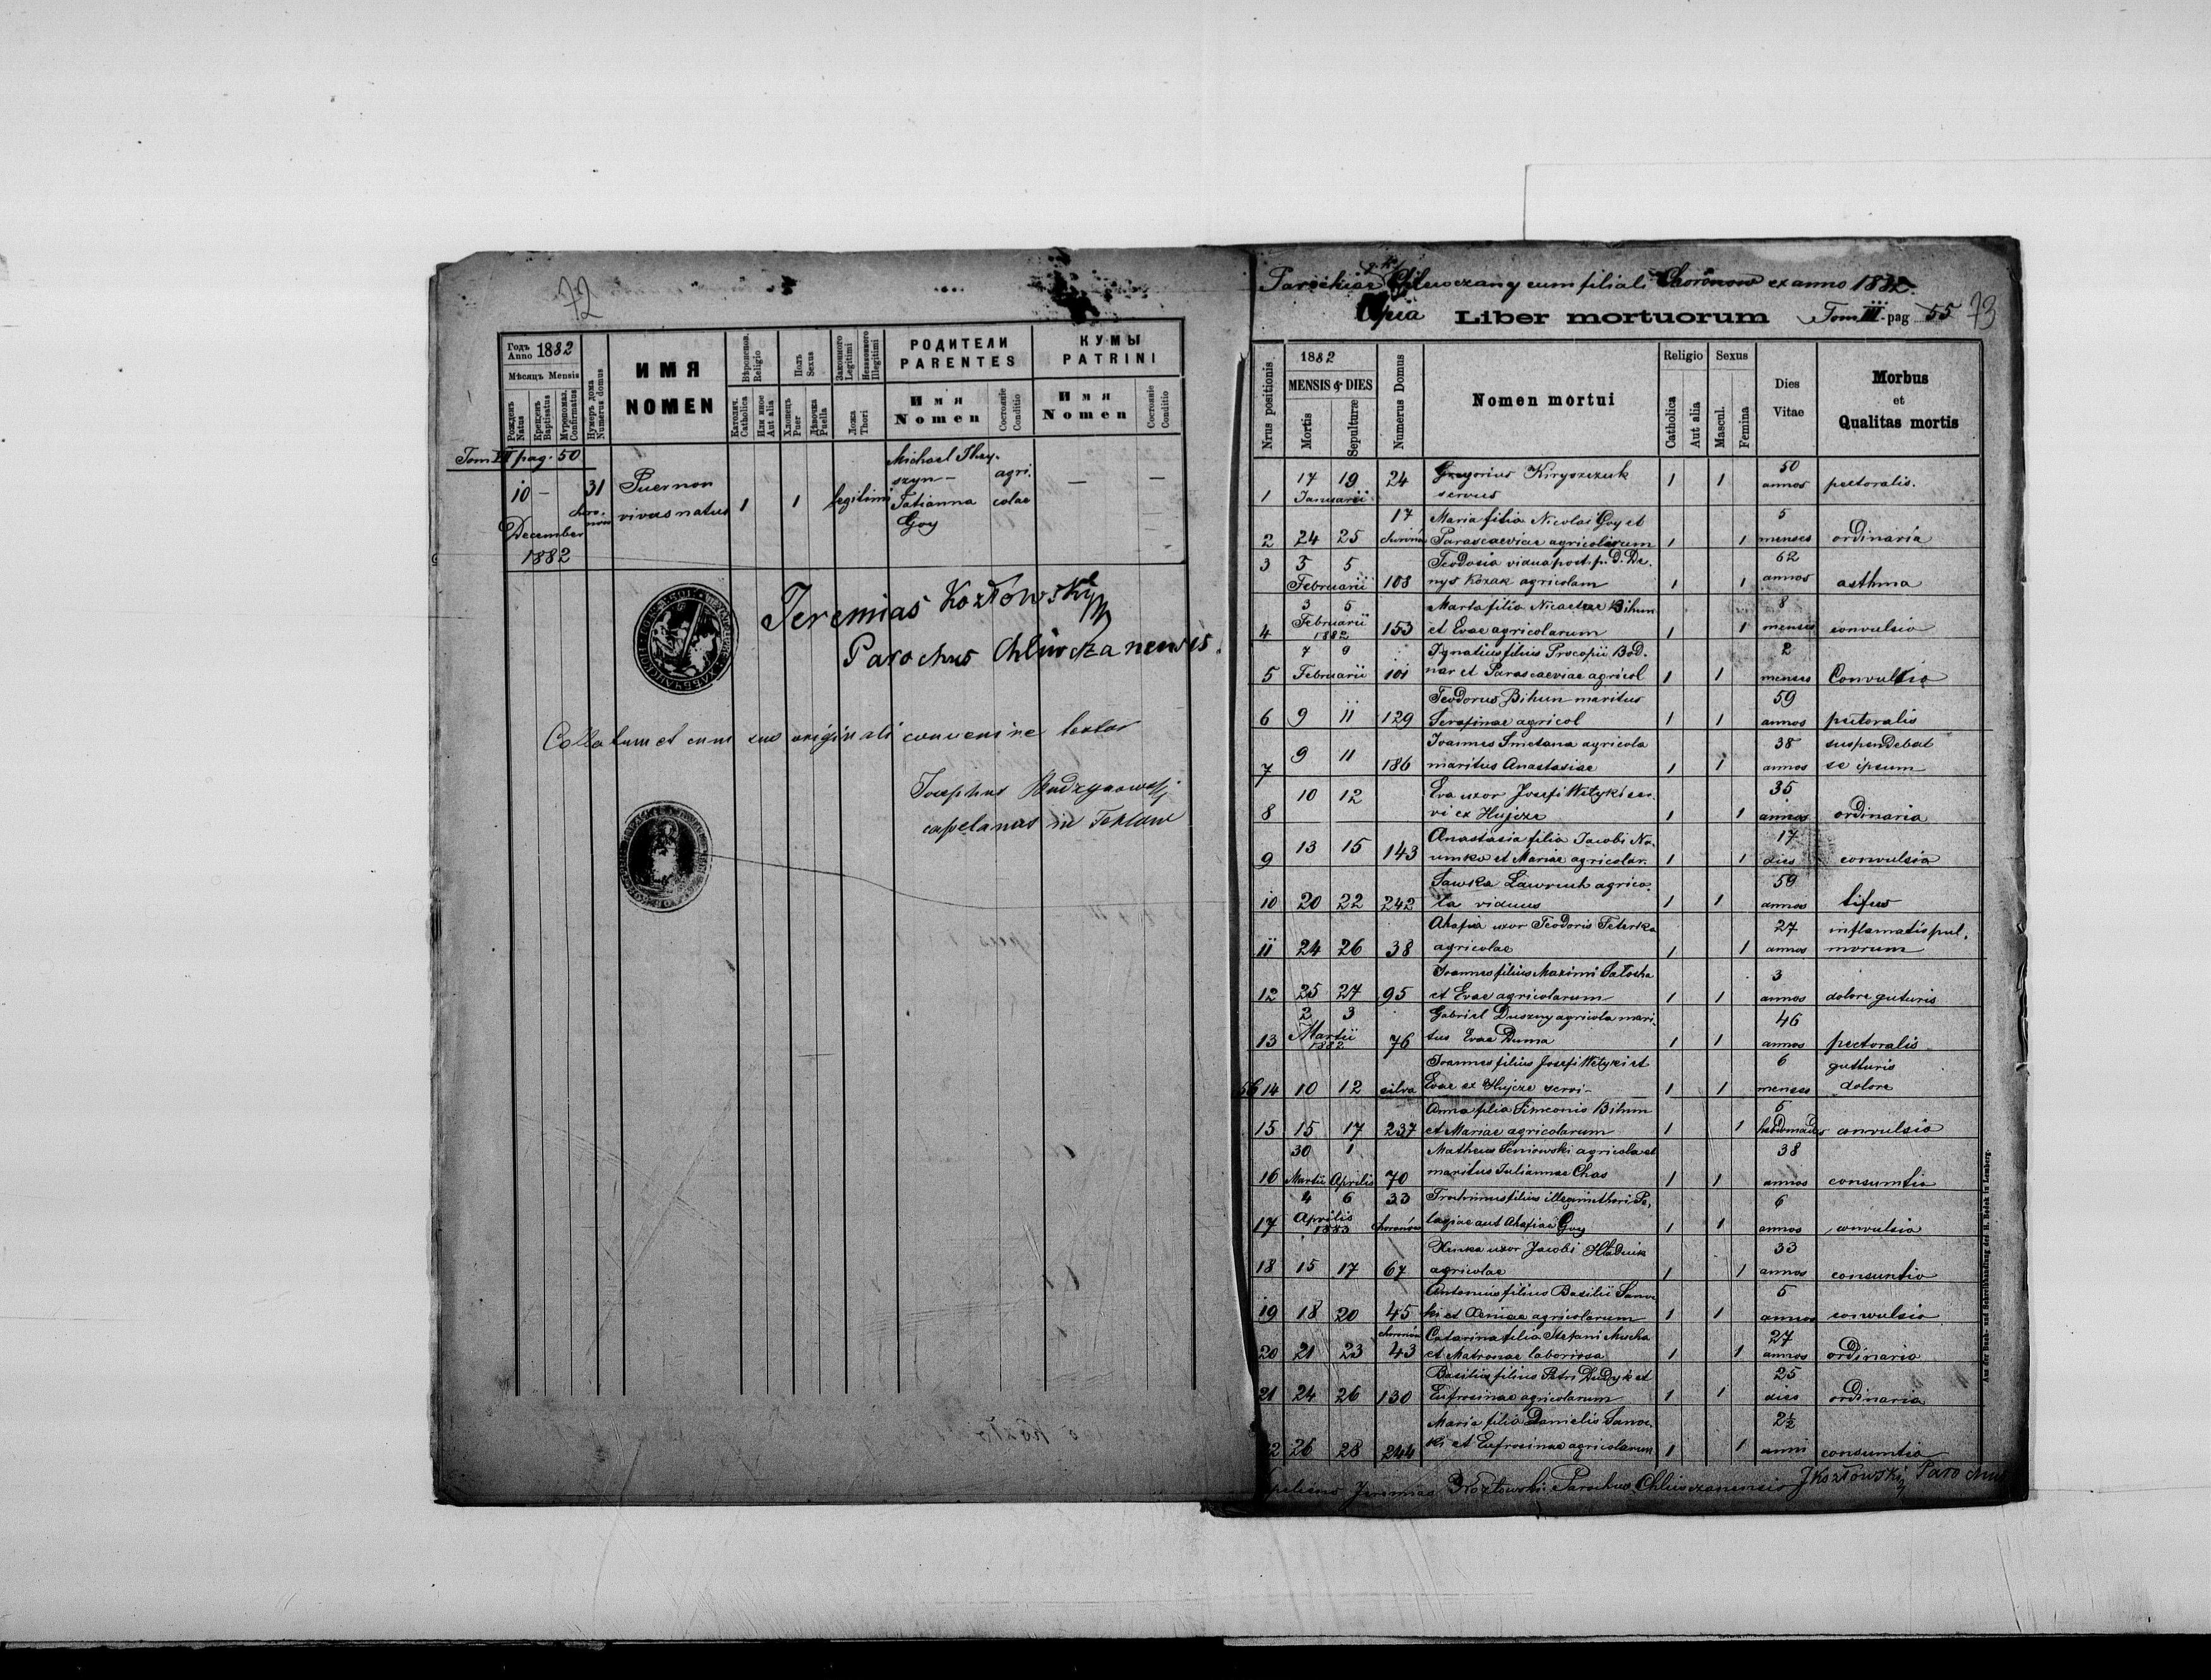 72
Годъ Anno 1882
Мѣсяцъ Mensis
Рожденъ Natus
Крещенъ Baptisatus
Мѵропомаз. Confirmatus
Нумеръ дома Numerus domus
ИМЯ NOMEN
Вѣроиспов. Religio
Католич. Catholica
Или иное Aut alia
Полъ Sexus
Хлопецъ Puer
Дѣвочка Puella
Законного Legitimi
Незаконного Illegitimi
Ложа Thori
РОДИТЕЛИ PARENTES
Имя Nomen
Состояніе Conditio
КУМЫ PATRINI
Имя Nomen
Состояніе Conditio
Tom III pag. 50
10 — 31
December
1882
Puer non
vivus natus
1 1 legitimi
Michael
Tatianna
Goy
agri-
colae
— —
Jeremias Kozłowskij
Parochus Chliwczanensis.
Collatum et cum suo originali convenire testor
Josephus
capelanus in
Parochiae Chliwczany cum filiali Choronow ex anno 1882.
Copia Liber mortuorum Tom III. pag 55 73
Nrus positionis
1882
MENSIS & DIES
Mortis
Sepulturæ
Numerus Domus
Nomen mortui
Religio
Catholica
Aut alia
Sexus
Mascul.
Femina
Dies Vitae
Morbus et Qualitas mortis
1 17 19 Januarii 24 Gregorius Kiryszczuk
servus 1 1 50 annos pectoralis.
2 24 25 17 choronów Maria filia Nicolai Goy et
Parascaeviae agricolarum 1 1 5 menses ordinaria
3 3 5 Februarii 108 Teodosia vidua post p. D. De-
nys Kozak agricolam 1 1 62 annos asthma
4 3 5 Februarii 1882 153 Marta filia Nicaetae Bihun
et Evae agricolarum 1 1 8 menses convulsio
5 7 9 Februarii 101 Ignatius filius Procopii Bod-
nar et Parascaeviae agricol 1 1 2 menses Convulsio
6 9 11 129 Teodorus Bihun maritus
Serafinae agricol 1 1 59 annos pectoralis
7 9 11 186 Joannes Smetana agricola
maritus Anastasiae 1 1 38 annos suspendebat
se ipsum
8 10 12 Eva uxor Josefi Wetyki ser-
vi ex Hujcze 1 1 35 annos ordinaria
9 13 15 143 Anastasia filia Jacobi Na-
umko et Mariae agricolar. 1 1 17 dies convulsio
10 20 22 242 Sawka Ławruch agrico-
la viduus 1 1 59 annos tifus
11 24 26 38 Ahafia uxor Teodoris Feterka
agricolae 1 1 27 annos inflamatis pul-
monum
12 25 27 95 Joannes filius Maximi Satosha
et Evae agricolarum 1 1 3 annos dolore guturis
13 2 3 Martii 1882 76 Gabriel Duszny agricola mari-
tus Evae Duma 1 1 46 annos pectoralis
56 14 10 12 silva Joannes filius Josefi Wetyki et
Evae ex Hujcze servi 1 1 6 menses gutturis
dolore
15 15 17 237 Anna filia Simeonis Bihun
et Mariae agricolarum 1 1 5 hebdomades convulsio
16 30 Martii 1 Aprilis 70 Matheus Seniowski agricola et
maritus Juliannae Chas 1 1 38 annos consumtio
17 4 6 Aprilis 1883 33 choronów filius illegimi thori Pe-
lagiae aut Ahafiae Goy 1 1 6 annos convulsio
18 15 17 67 uxor Jacobi Hładuik
agricolae 1 1 33 annos consuntio
19 18 20 45 Antonius filius Basilii Sanoc-
ki et Xeniae agricolarum 1 1 5 annos convulsio
20 21 23 choronów 43 Catarina filia Stefani Mucha
et Matronae laboriosa 1 1 27 annos ordinaria
21 24 26 130 Basilius filius Petri Dudyk et
Eufrosinae agricolarum 1 1 25 dies ordinaria
22 26 28 244 Maria filia Danielis Sanoc-
ki et Eufrosinae agricolarum 1 1 2½ anni consumtio
Jeremias Kozłowski Parochus Chliwczanensis JKozłowskij Parochus
Aus der Buch- und Schreibhandlung des H. Bodek in Lemberg.